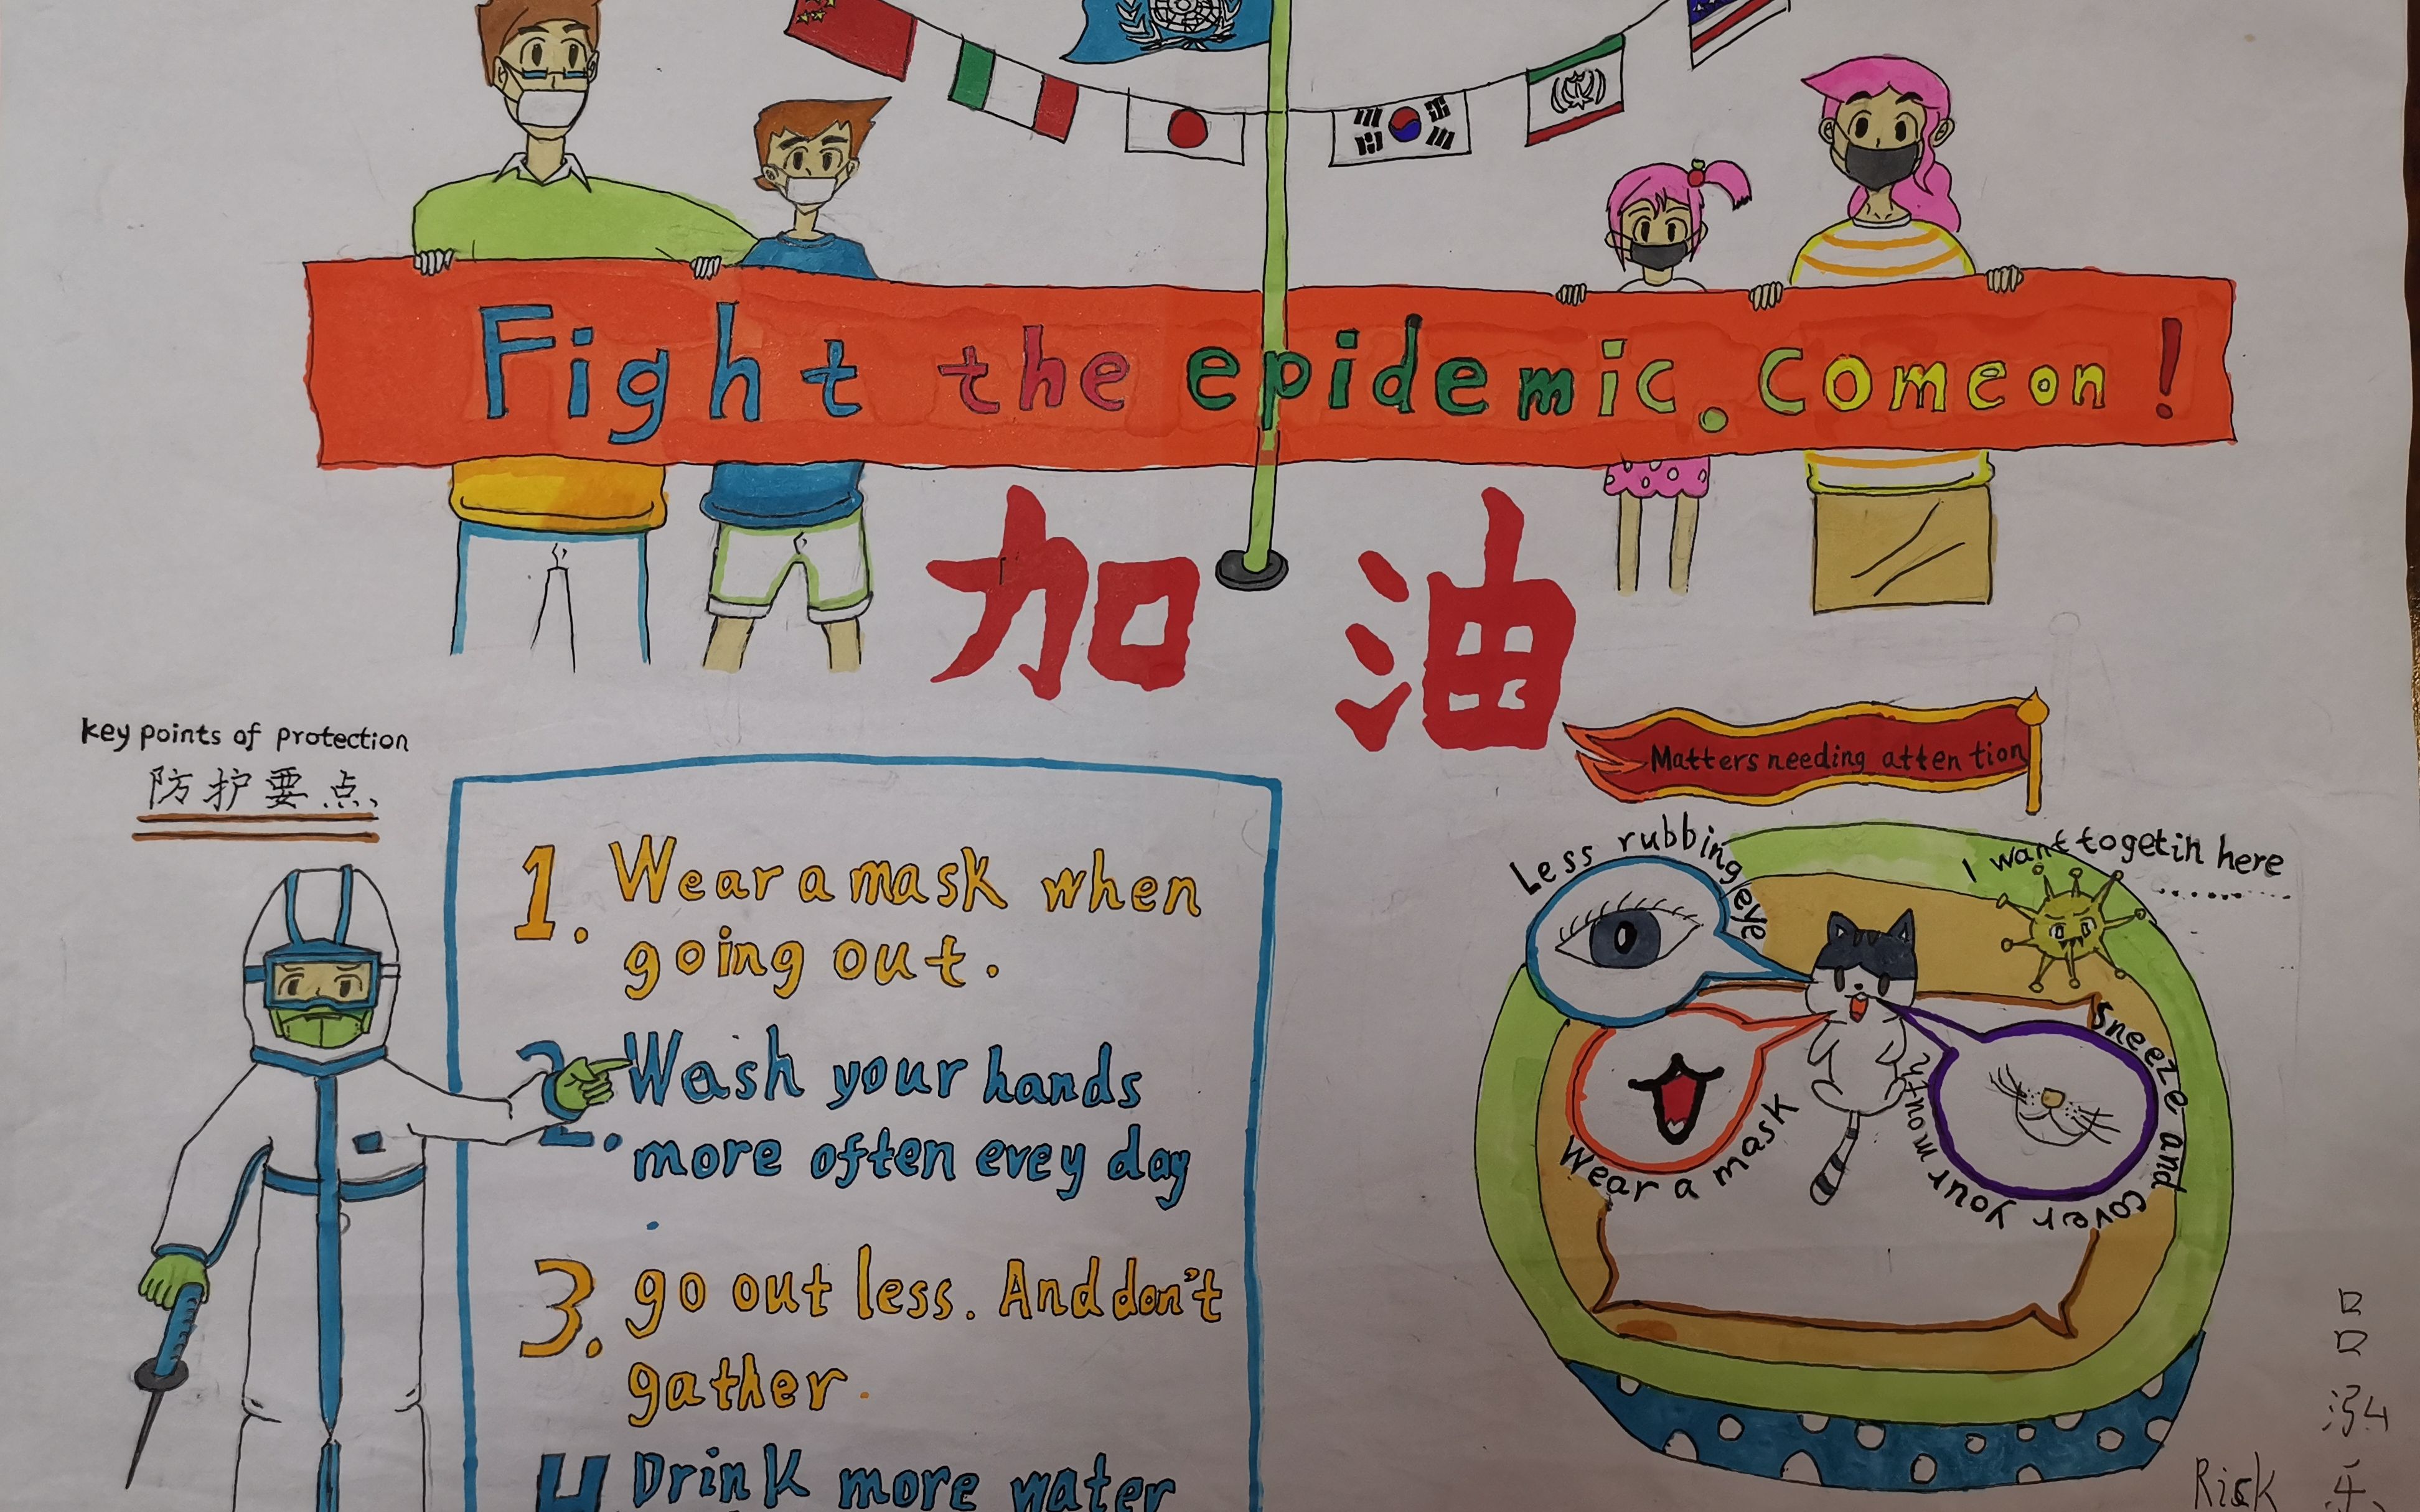 Fight the epidemic. Come on!
加油
key points of protection
防护要点
1. Wear a mask when
going out.
2. Wash your hands
more often evey day
.
3. go out less. And don't
gather.
4 Drink more water
Matters needing attention
Less rubbing eye
I want to get in here
Wear a mask
Sneeze and cover your mouth
吕泓乐
Risk